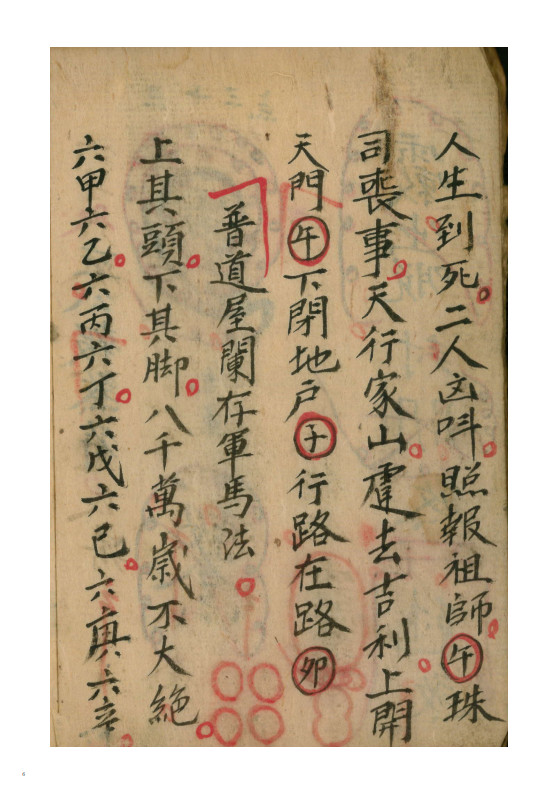 人生到死二人凶呌照報祖師午珠
司喪事天行家山虗去吉利上開
天門午下閉地户子行路在路卯
普道屋闌存軍馬法
上其頭下其脚八千萬歲不大絶
六甲六乙六丙六丁六戊六己六庚六辛